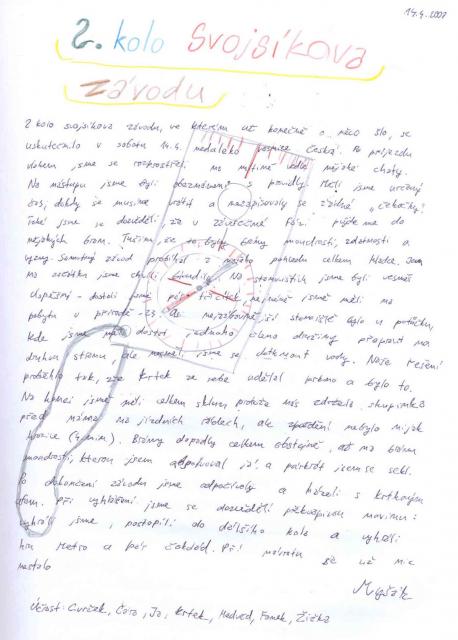 14.4.2007
2. kolo Svojsíkova
závodu
2 kolo svojsíkova závodu, ve kterém už konečně o něco šlo, se
uskutečnilo v sobotu 14.4. nedaleko vesnice Česká. Po příjezdu
vlakem jsme se rozprostřeli na mýtině vedle nějaké chaty.
Na nástupu jsme byli obeznámeni s pravidly měli jsme určený
čas, dokdy se musíme vrátit a nezapisovaly se žádné „čekačky“
Také jsme se dozvěděli že v závěrečné fázi půjdeme do
nějakých bran. Tuším, že to byly brány moudrosti, zdatnosti a
výzvy. Samotný závod probíhal z mého pohledu celkem hladce. Jen
na začátku jsme chvíli bloudili. Na stanovištích jsme byli vesměs
úspěšný - dostali jsme pět nejméně jsme měli na
pobytu v přírodě - 25 stanoviště bylo u potůčku,
kde jsme měli dostat jednoho člena družiny přepravit na
druhou stranu ale nesměli jsme se dotknout vody. Naše řešení
proběhlo tak, že Krtek ze sebe udělal prkno a bylo to.
Na konci jsme měli celkem sklouz protože nás zdržela skupinka
před náma na jízdních kolech, ale zpoždění nebylo nijak
hrozné (4 min). Brány dopadly celkem obstojně, až na bránu
moudrosti, kterou jsem absolvoval já a párkrát jsem se sekl.
Po dokončení závodu jsme odpočívaly a házeli s krtkovým
При vyhlášení jsme se dozvěděli překvapivou novinu:
vyhráli jsme, postoupili do dalšího kola a vyhráli
hru Metro a pár čokolád. Při návratu se už nic
nestalo
Myšák
Účast: Cvrček, Čára, Jo, Krtek, Medvěd, Fanek, Žižka